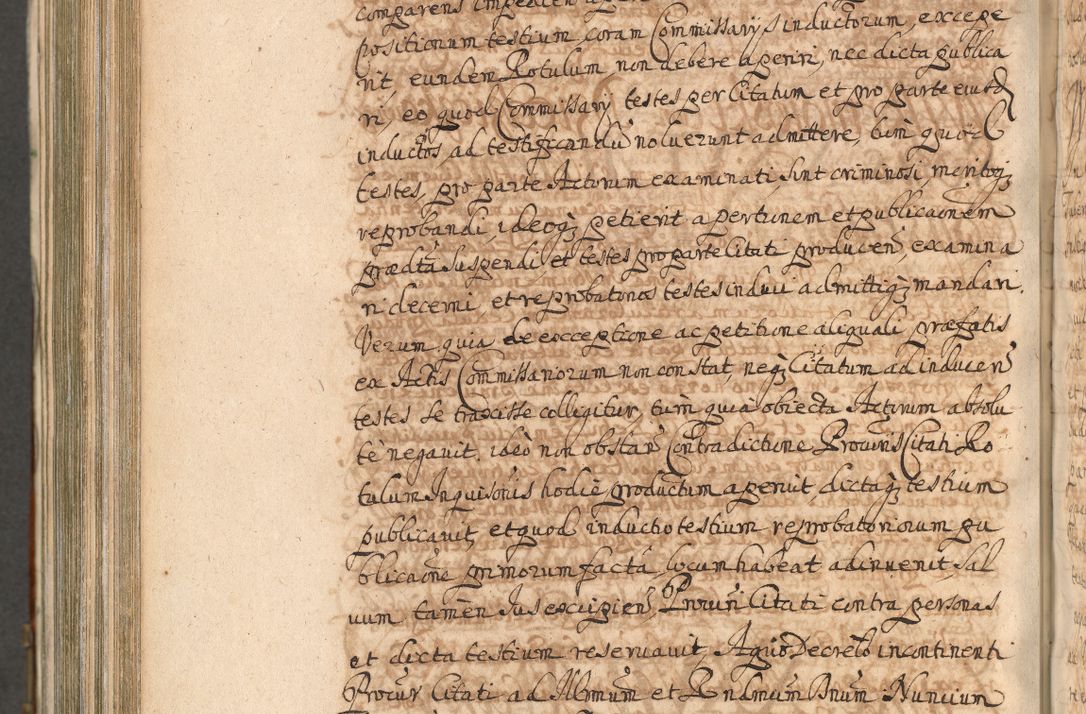 comparens impedien aperi
positionum testium coram Commissarijs inductorum, excepe
rit, eundem Rotulum, non debere aperiri, nec dicta publica
ri, eo quod Commissarij testes per Citatum et pro parte eiusd
inductos, ad testificandũ noluerunt admittere, tum quod
testes, pro parte Actorum examinati, sint criminosi, meritoq;
reprobandi, ideoq; petierit aperturnem et publicaonem
prædtã suspendi, et testes pro parte Citati producen, examina
ri decerni, et reprobatorios testes induci admittiq; mandari.
Verum quia de exceptione ac petitione aliquali præfatis
ex Actis Commissariorum non constat, neq; Citatum ad inducen
testes se traxisse colligitur, tum quia obiecta Actorum absolu
te negavit, ideò non obstan Contradictione Procuris Citati Ro
tulum Inquisonis hodie productum aperuit, dictaq; testium
publicavit, et quod inductio testium reprobatoriorum pu
blicaone primorum factâ, locum habeat adinvenit, Sal
vum tamen Ius excipien, Procuri Citati contra personas
et dicta testium reservavit, A quo Decreto incontinenti
Procur Citati ad Illmum et Rndmum Dnum Nuncium